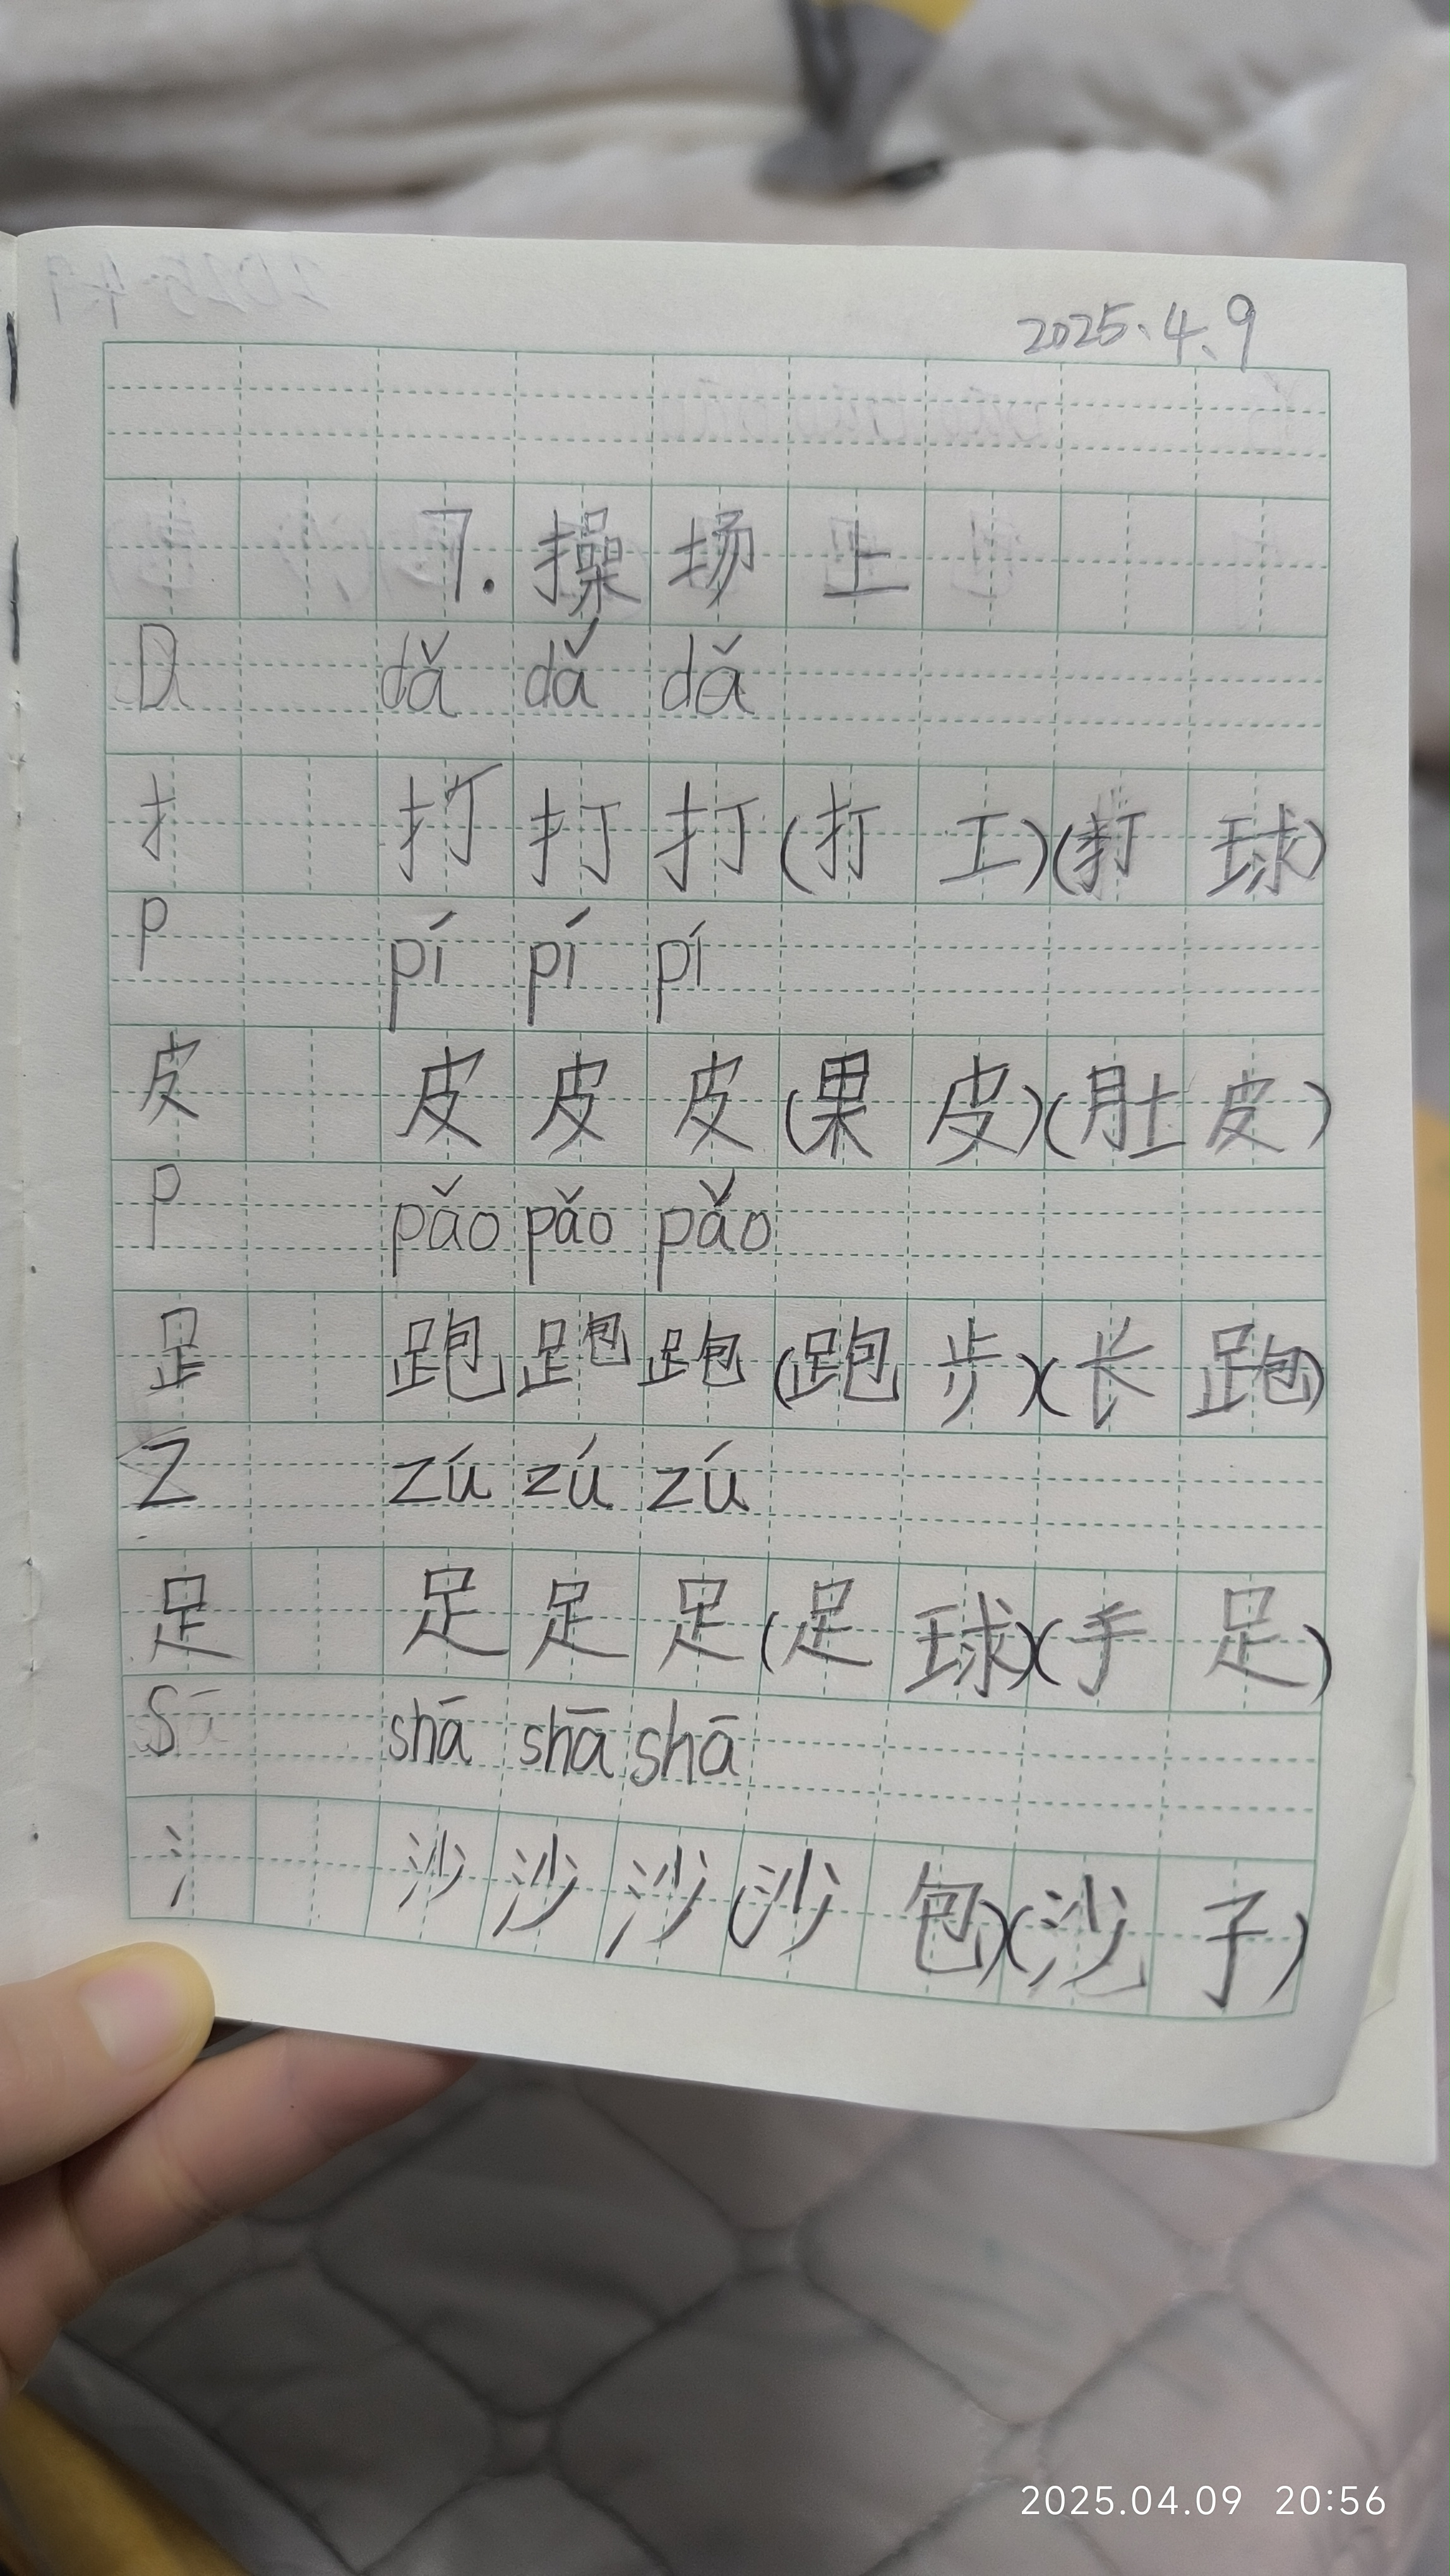 2025、4、9
7.操场上
D dǎ dǎ dǎ
扌 打 打 打(打工)(打球)
P pí pí pí
皮 皮 皮 皮(果皮)(肚皮)
P pǎo pǎo pǎo
𧾷 跑 跑 跑(跑步)(长跑)
Z zú zú zú
足 足 足 足(足球)(手足)
S shā shā shā
氵 沙 沙 沙(沙包)(沙子)
2025.04.09 20:56